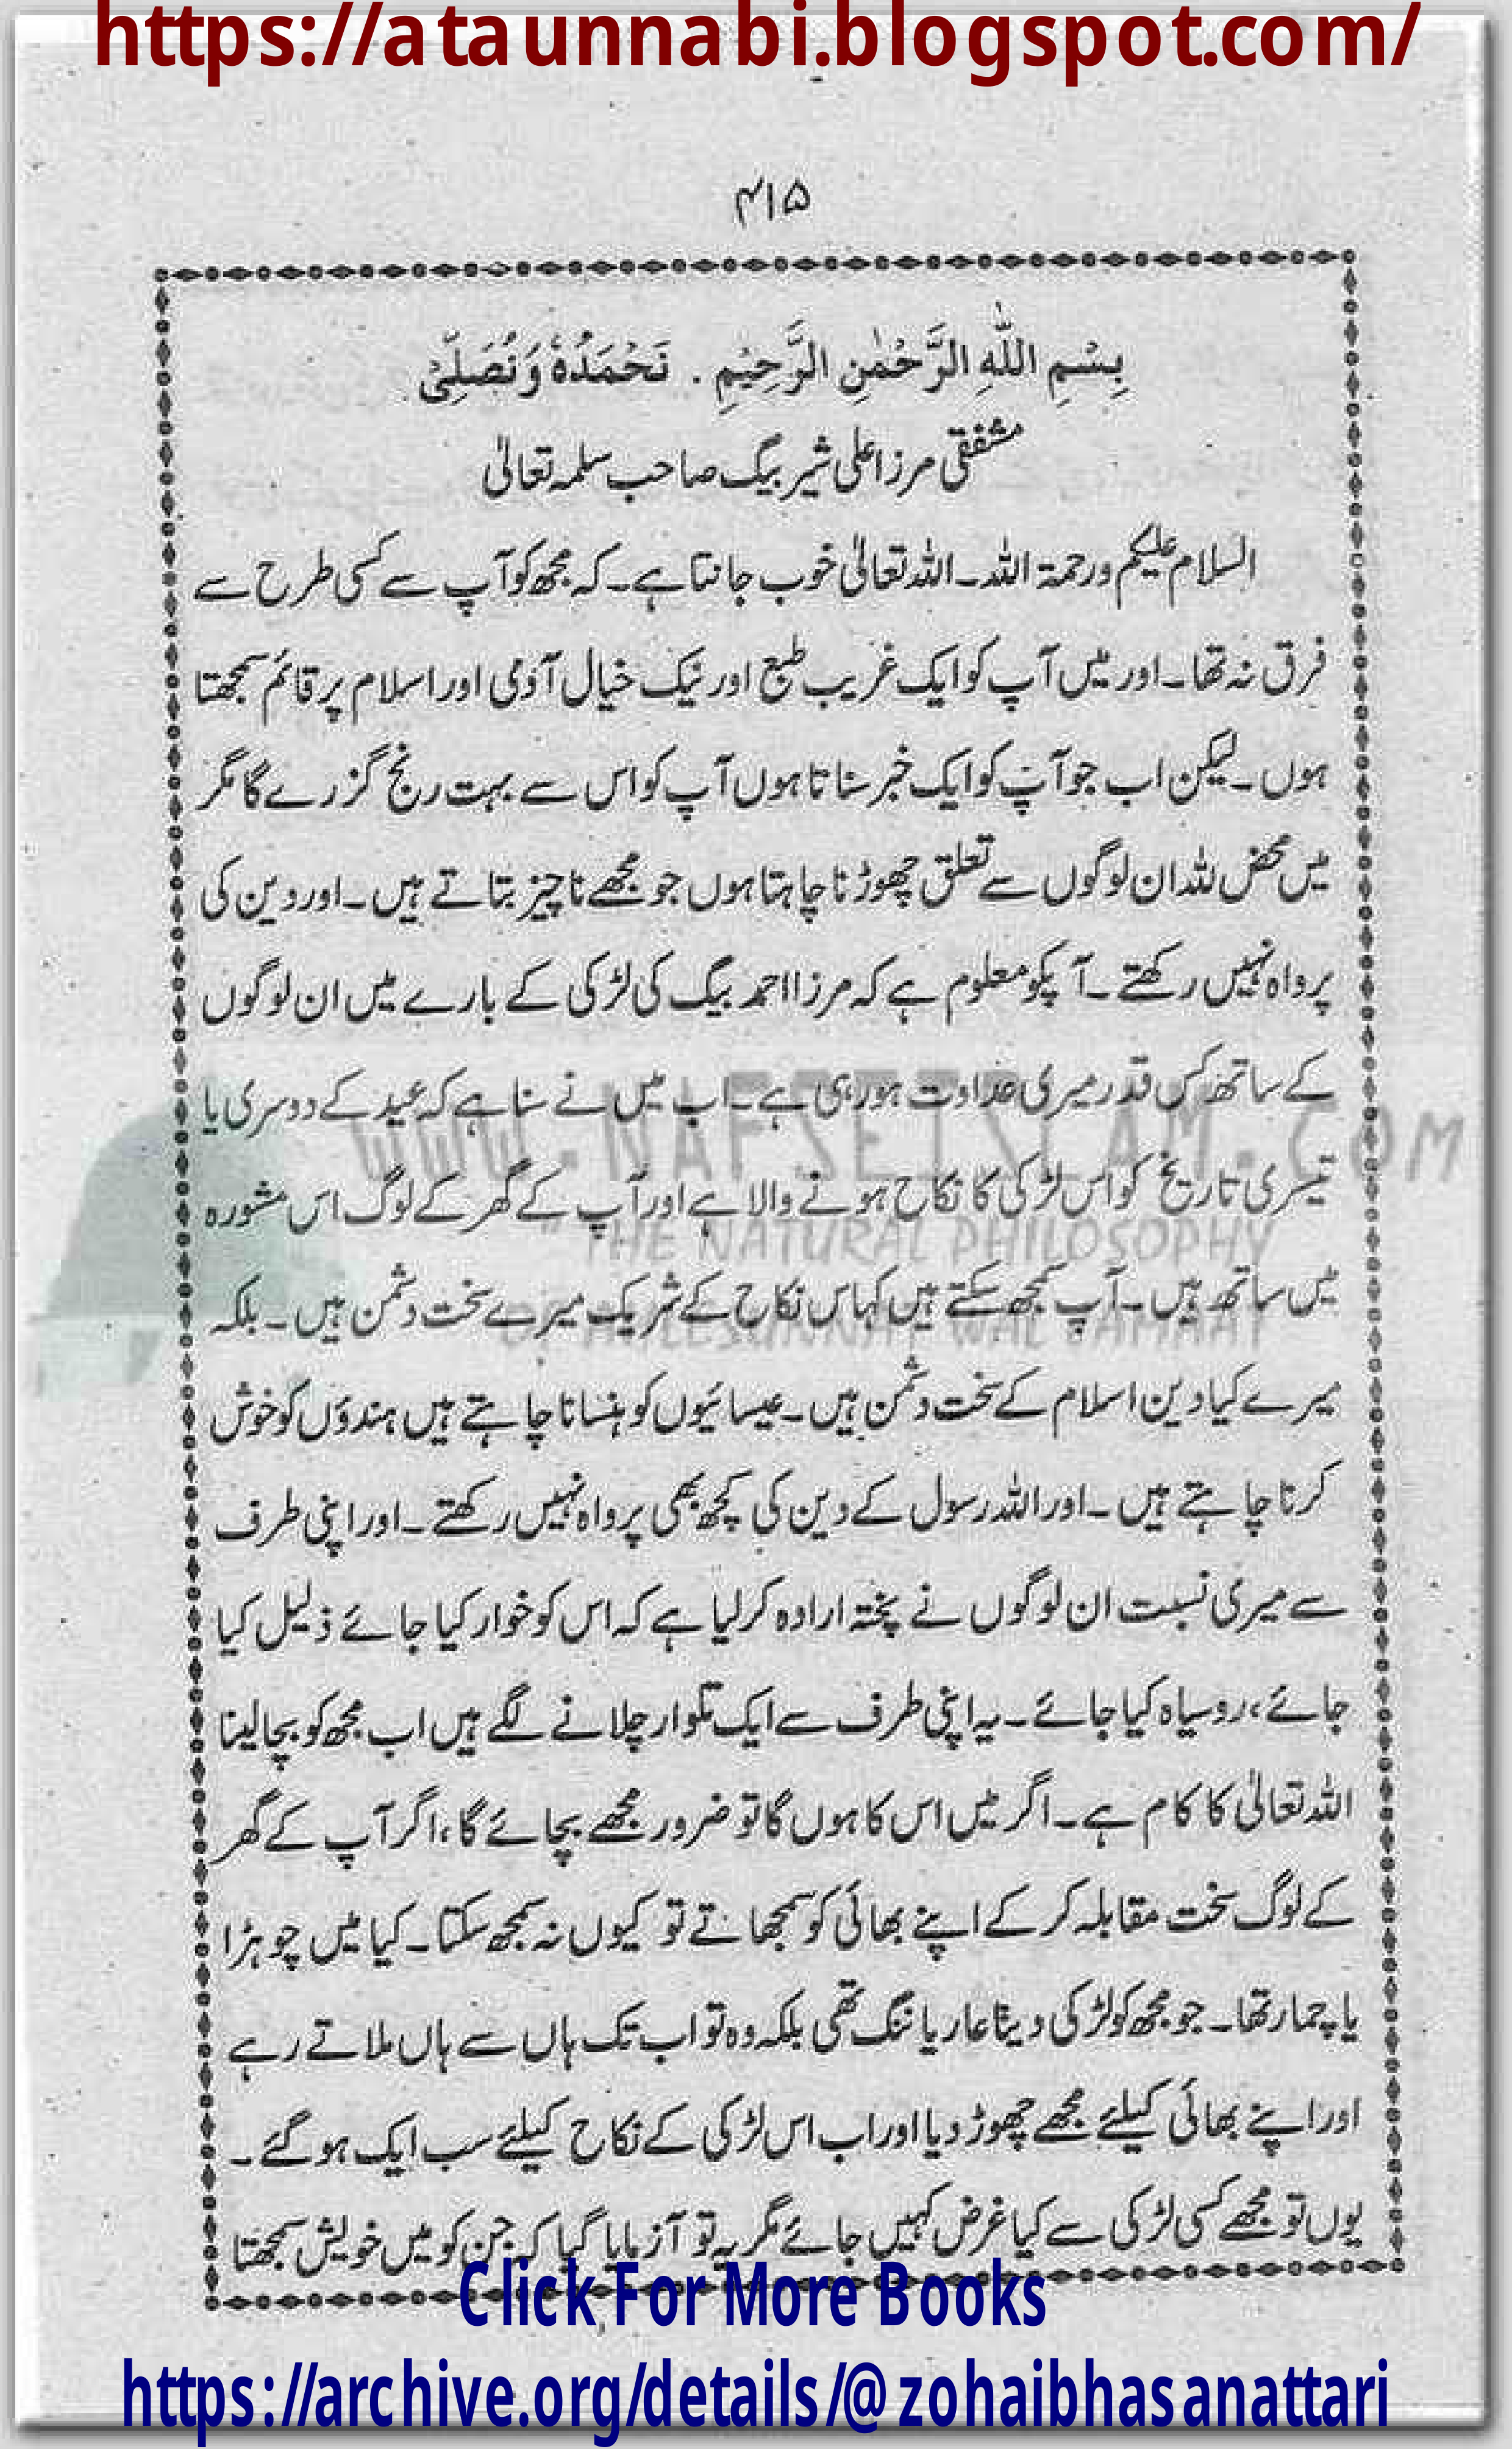 https://ataunnabi.blogspot.com/
۴۱۵
بِسْمِ اللّٰهِ الرَّحْمٰنِ الرَّحِيْمِ . نَحْمَدُهٗ وَنُصَلِّيْ
مشفقی مرزا علی شیر بیگ صاحب سلمہ تعالیٰ
السلام علیکم ورحمۃ اللہ۔ اللہ تعالیٰ خوب جانتا ہے۔ کہ مجھ کو آپ سے کسی طرح سے
فرق نہ تھا۔ اور میں آپ کو ایک غریب طبع اور نیک خیال آدمی اور اسلام پر قائم سمجھتا
ہوں۔ لیکن اب جو آپ کو ایک خبر سناتا ہوں آپ کو اس سے بہت رنج گزرے گا مگر
میں محض للہ ان لوگوں سے تعلق چھوڑنا چاہتا ہوں جو مجھے ناچیز بتاتے ہیں۔ اور دین کی
پرواہ نہیں رکھتے۔ آپکو معلوم ہے کہ مرزا احمد بیگ کی لڑکی کے بارے میں ان لوگوں
کے ساتھ کس قدر میری عداوت ہو رہی ہے۔ اب میں نے سنا ہے کہ عید کے دوسری یا
تیسری تاریخ کو اس لڑکی کا نکاح ہونے والا ہے اور آپ کے گھر کے لوگ اس مشورہ
میں ساتھ ہیں۔ آپ سمجھ سکتے ہیں کہ اس نکاح کے شریک میرے سخت دشمن ہیں۔ بلکہ
میرے کیا دین اسلام کے سخت دشمن ہیں۔ عیسائیوں کو ہنسانا چاہتے ہیں ہندؤں کو خوش
کرنا چاہتے ہیں۔ اور اللہ رسول کے دین کی کچھ بھی پرواہ نہیں رکھتے۔ اور اپنی طرف
سے میری نسبت ان لوگوں نے پختہ ارادہ کر لیا ہے کہ اس کو خوار کیا جائے ذلیل کیا
جائے، روسیاہ کیا جائے۔ یہ اپنی طرف سے ایک تلوار چلانے لگے ہیں اب مجھ کو بچا لینا
اللہ تعالیٰ کا کام ہے۔ اگر میں اس کا ہوں گا تو ضرور مجھے بچائے گا، اگر آپ کے گھر
کے لوگ سخت مقابلہ کر کے اپنے بھائی کو سمجھاتے تو کیوں نہ سمجھ سکتا۔ کیا میں چوہڑا
یا چمار تھا۔ جو مجھ کو لڑکی دینا عار یا ننگ تھی بلکہ وہ تو اب تک ہاں سے ہاں ملاتے رہے
اور اپنے بھائی کیلئے مجھے چھوڑ دیا اور اب اس لڑکی کے نکاح کیلئے سب ایک ہو گئے۔
یوں تو مجھے کسی لڑکی سے کیا غرض کہیں جائے مگر یہ تو آزمایا گیا کہ جن کو میں خویش سمجھتا
WWW.NAFSEISLAM.COM
"THE NATURAL PHILOSOPHY
OF AHLESUNNAT WAL JAMAAT"
Click For More Books
https://archive.org/details/@zohaibhasanattari